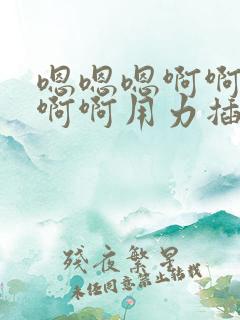 嗯嗯嗯啊啊
啊啊用力插
残夜繁星
未经同意禁止转载